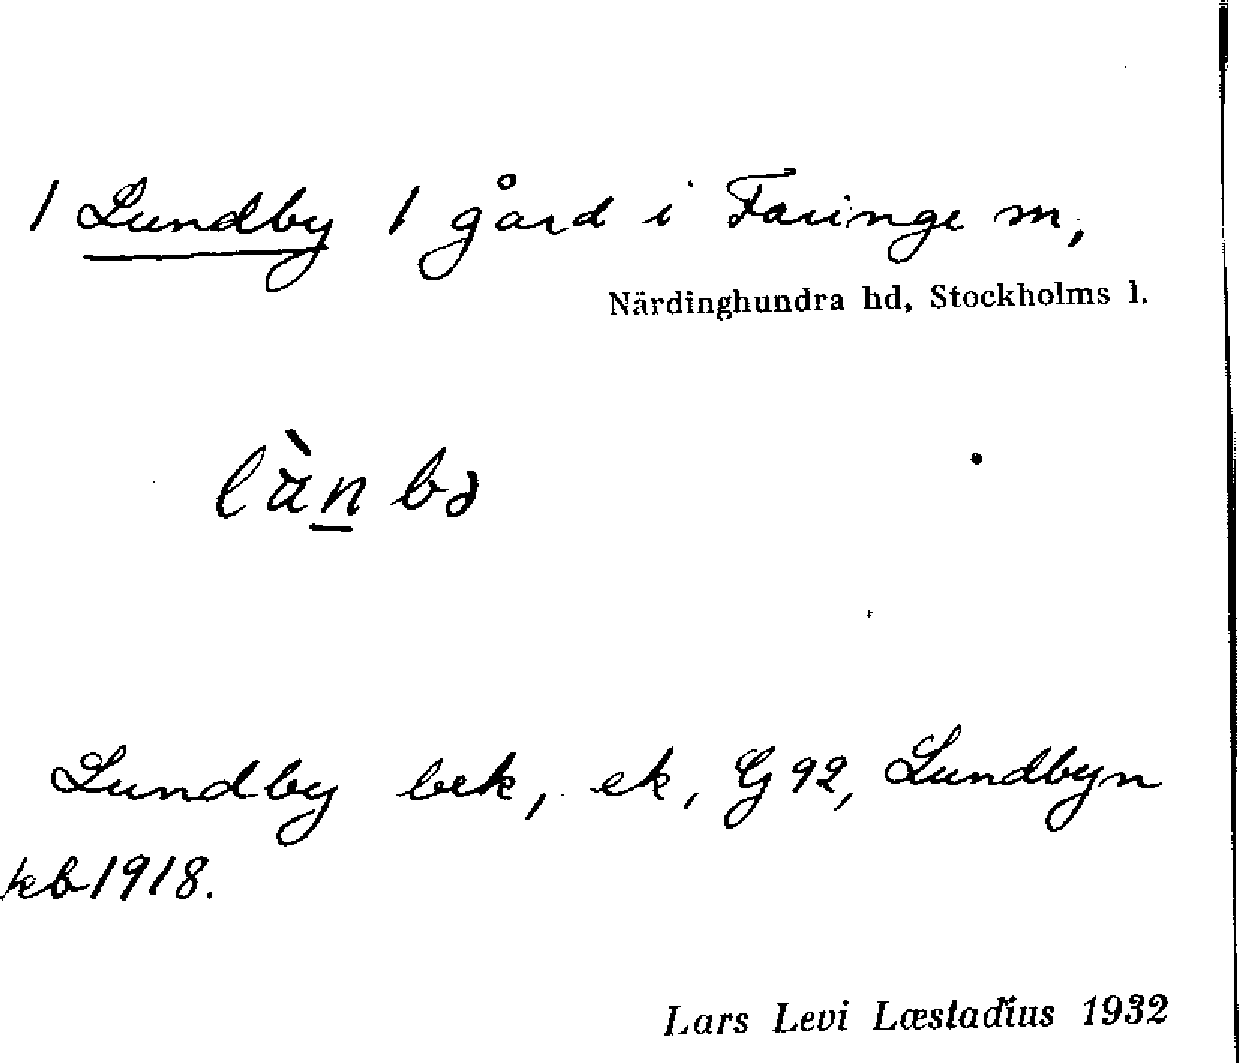 1 Lundby 1 gård i Faringe sn,
Närdinghundra hd, Stockholms l.
làn bə
Lundby bek, ek, G 92, Lundbyn
kb 1918.
Lars Levi Læstadius 1932